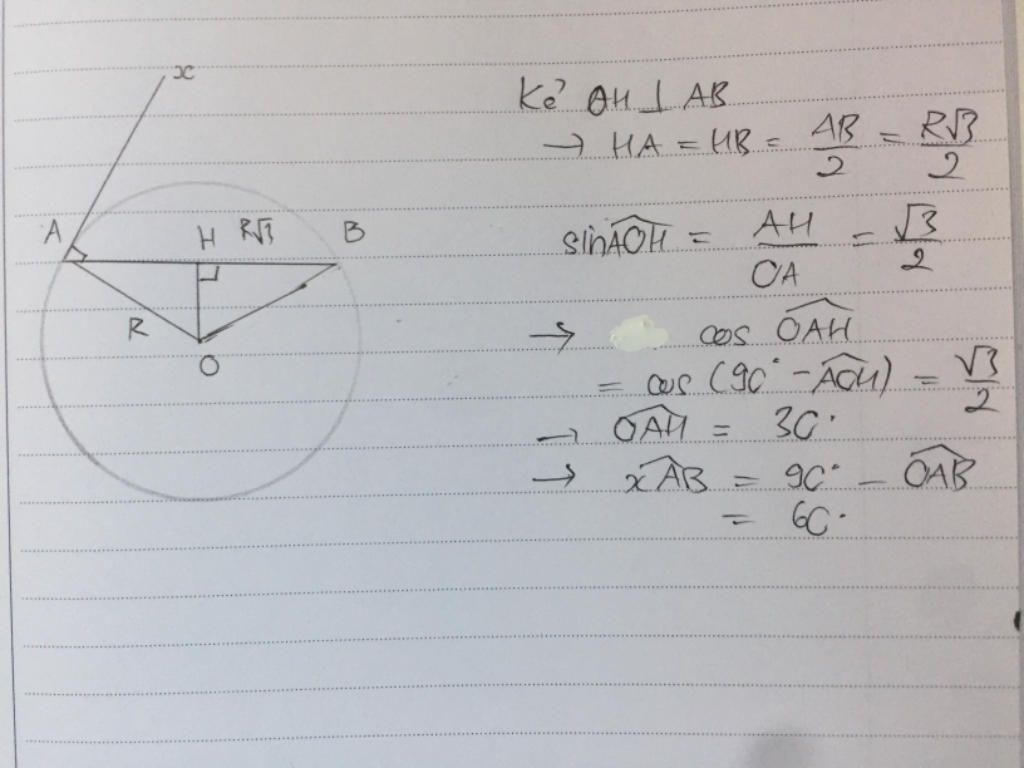 x
A
H
R√3
B
R
O
Kẻ OH ⊥ AB
→ HA = HB = AB/2 = R√3/2
sin \widehat{AOH} = AH/OA = √3/2
→ cos \widehat{OAH}
= cos (90° - \widehat{AOH}) = √3/2
→ \widehat{OAH} = 30°
→ \widehat{xAB} = 90° - \widehat{OAB}
= 60°